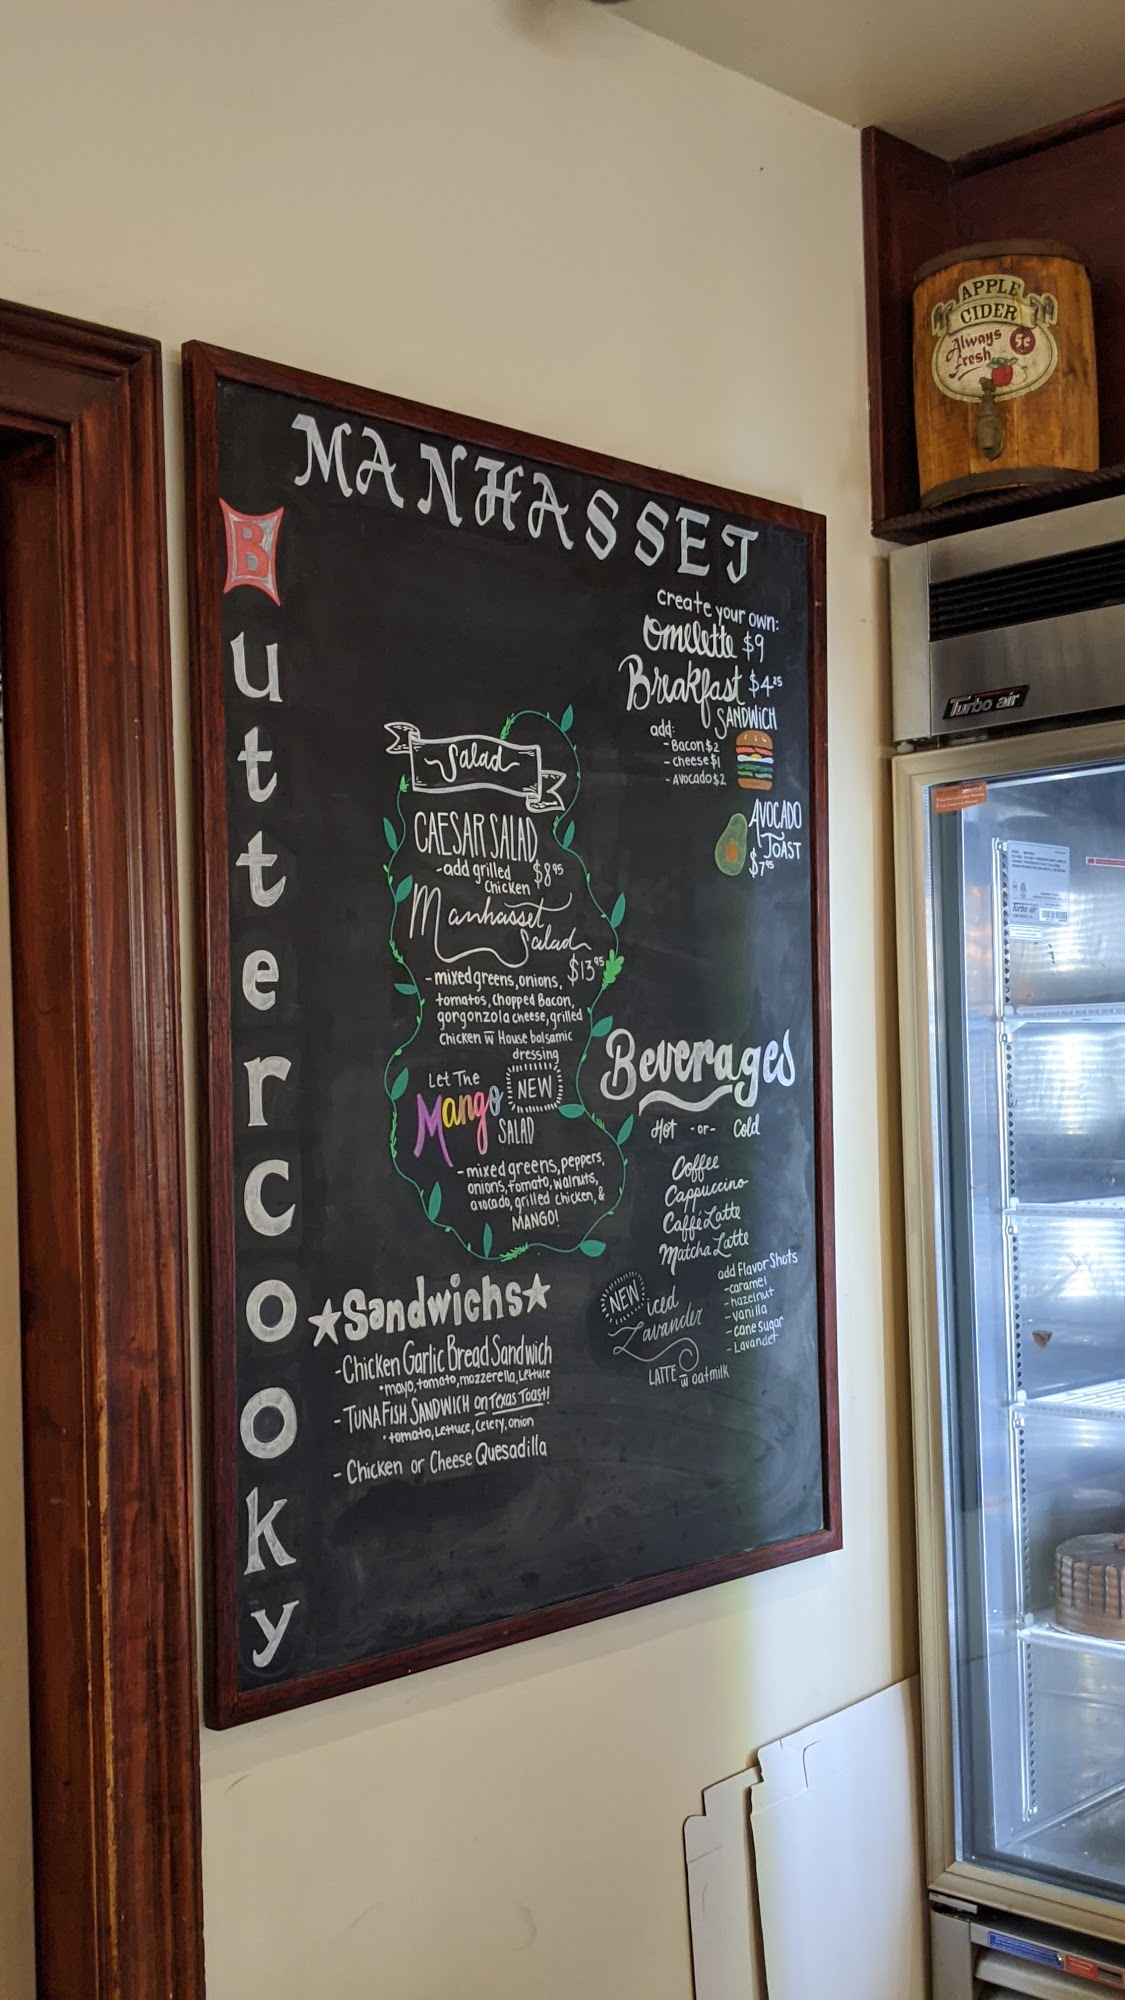 MANHASSET
Buttercooky
create your own:
Omelette $9
Breakfast $4.25
SANDWICH
add:
- Bacon $2
- cheese $1
- Avocado $2
AVOCADO
TOAST
$7.95
Salad
CAESAR SALAD
- add grilled $8.95
Chicken
Manhasset
Salad
$13.95
- mixed greens, onions,
tomatos, chopped Bacon,
gorgonzola cheese, grilled
Chicken w House balsamic
dressing
Let The
Mango NEW
SALAD
- mixed greens, peppers,
onions, tomato, walnuts,
avocado, grilled chicken, &
MANGO!
Beverages
Hot -or- Cold
Coffee
Cappuccino
Caffé Latte
Matcha Latte
add Flavor Shots
- caramel
- hazelnut
- vanilla
- cane sugar
- Lavander
NEW iced
Lavander
LATTE w oatmilk
★Sandwichs★
- Chicken Garlic Bread Sandwich
• mayo, tomato, mozzerella, Lettuce
- TUNAFISH SANDWICH on TEXAS TOAST!
• tomato, Lettuce, Celery, onion
- Chicken or Cheese Quesadilla
APPLE
CIDER
Always
Fresh
5¢
Turbo air
Turbo air